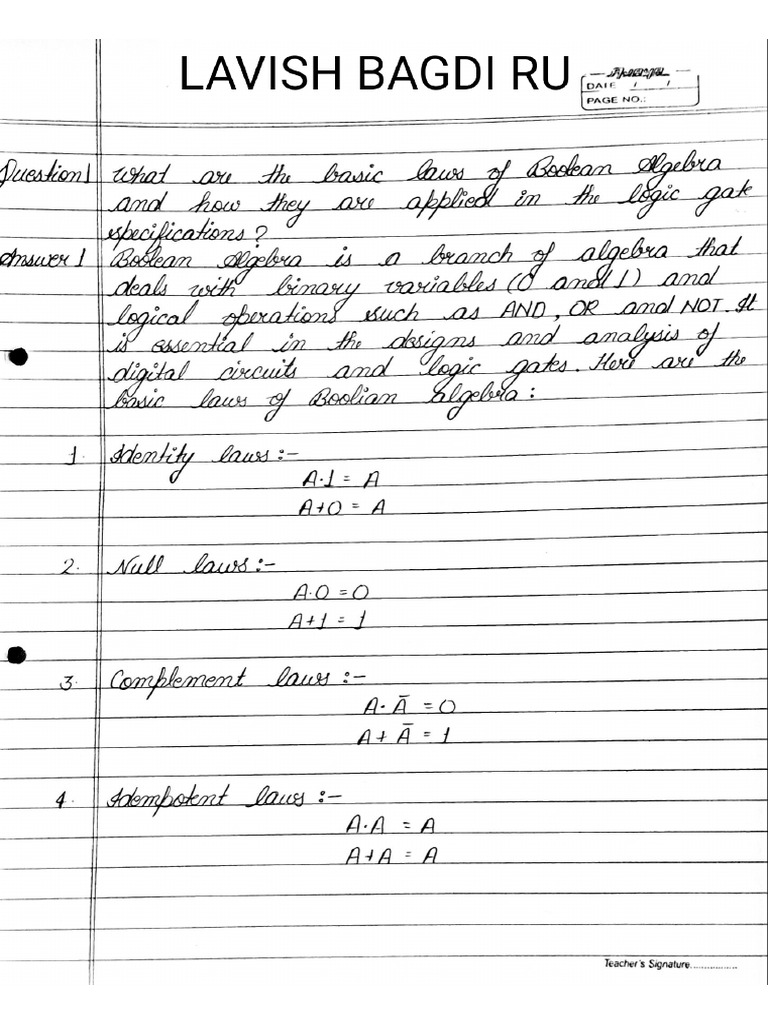 LAVISH BAGDI RU
DATE / /
PAGE NO.:
Question 1 What are the basic laws of Boolean Algebra
and how they are applied in the logic gate
specifications?
Answer 1 Boolean Algebra is a branch of algebra that
deals with binary variables (0 and 1) and
logical operations such as AND, OR and NOT. It
is essential in the designs and analysis of
digital circuits and logic gates. Here are the
basic laws of Boolian algebra:
1. Identity laws:-
A·1 = A
A+0 = A
2. Null laws:-
A·0 = 0
A+1 = 1
3. Complement laws:-
A· Ā = 0
A + Ā = 1
4. Idempotent laws:-
A·A = A
A+A = A
Teacher's Signature................